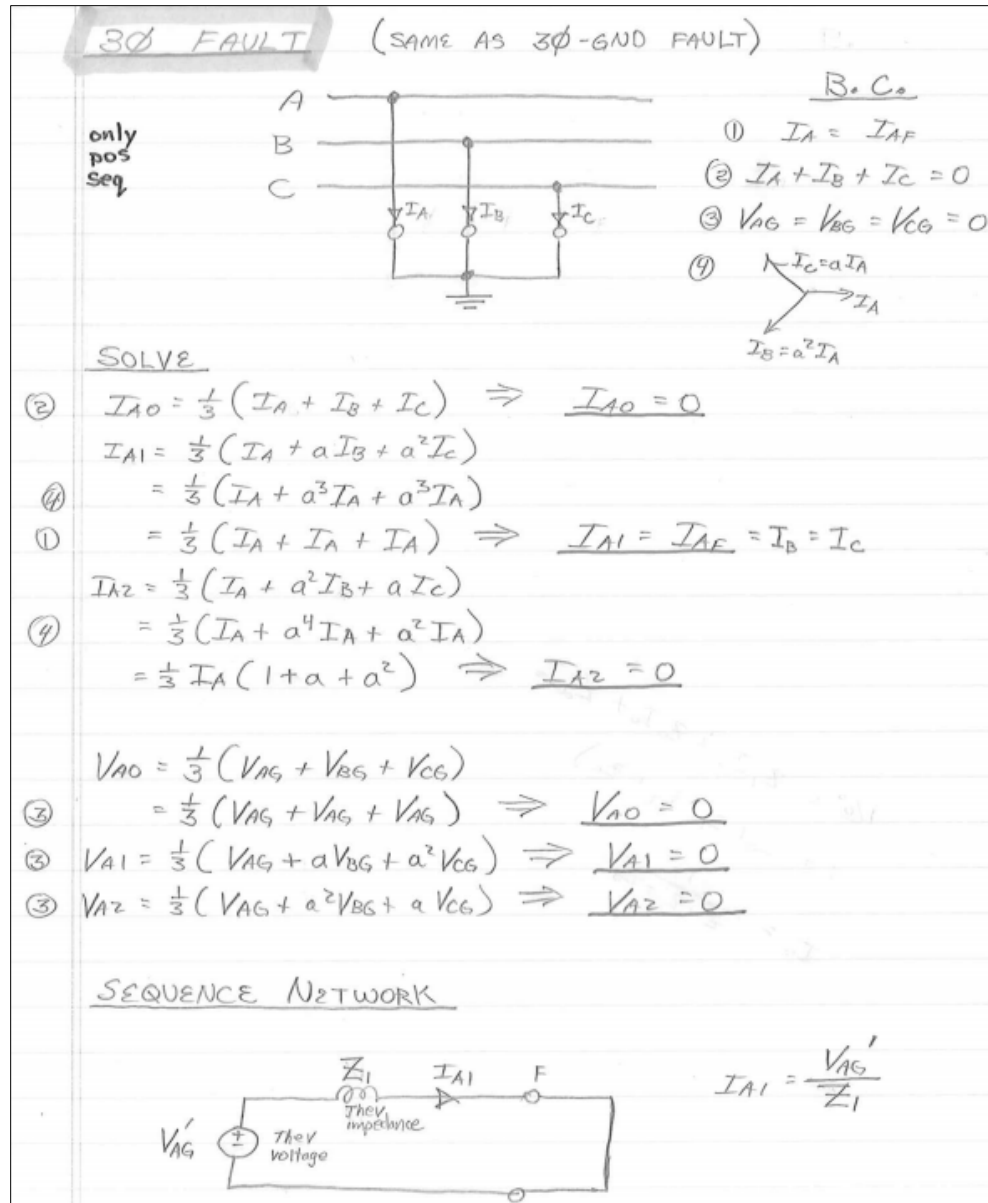 3Ø FAULT (SAME AS 3Ø-GND FAULT)
B.C.
A
B
C
only
pos
seq
I_A
I_B
I_C
① I_A = I_AF
② I_A + I_B + I_C = 0
③ V_AG = V_BG = V_CG = 0
④ I_C = a I_A
I_A
I_B = a² I_A
SOLVE
② I_A0 = 1/3 (I_A + I_B + I_C) ⇒ I_A0 = 0
I_A1 = 1/3 (I_A + a I_B + a² I_C)
④ = 1/3 (I_A + a³ I_A + a³ I_A)
① = 1/3 (I_A + I_A + I_A) ⇒ I_A1 = I_AF = I_B = I_C
I_A2 = 1/3 (I_A + a² I_B + a I_C)
④ = 1/3 (I_A + a⁴ I_A + a² I_A)
= 1/3 I_A (1 + a + a²) ⇒ I_A2 = 0
V_A0 = 1/3 (V_AG + V_BG + V_CG)
③ = 1/3 (V_AG + V_AG + V_AG) ⇒ V_A0 = 0
③ V_A1 = 1/3 (V_AG + a V_BG + a² V_CG) ⇒ V_A1 = 0
③ V_A2 = 1/3 (V_AG + a² V_BG + a V_CG) ⇒ V_A2 = 0
SEQUENCE NETWORK
Z_1
I_A1
F
Thev
impedance
V_AG'
±
Thev
voltage
I_A1 = V_AG' / Z_1